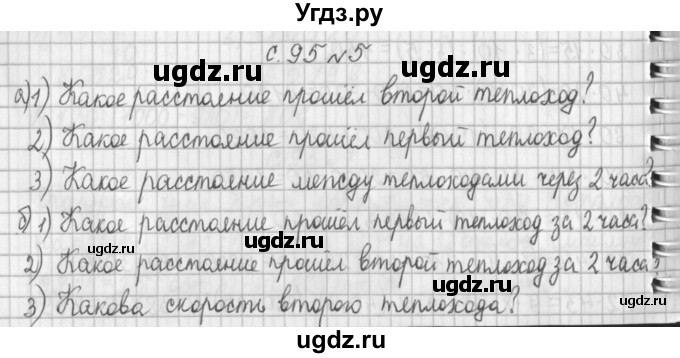 Угдз.ру
с. 95 №5
ugdz.ru ugdz.ru
а) 1) Какое расстояние прошёл второй теплоход?
2) Какое расстояние прошёл первый теплоход?
ugdz.ru ugdz.ru
3) Какое расстояние между теплоходами через 2 часа?
б) 1) Какое расстояние прошёл первый теплоход за 2 часа?
ugdz.ru ugdz.ru ugdz.ru
2) Какое расстояние прошёл второй теплоход за 2 часа?
3) Какова скорость второго теплохода?
ugdz.ru
ugdz.ru ugdz.ru